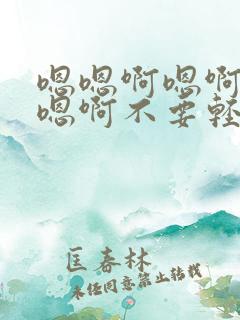 嗯嗯啊嗯啊
嗯啊不要轻
匡春林
未经同意禁止转载